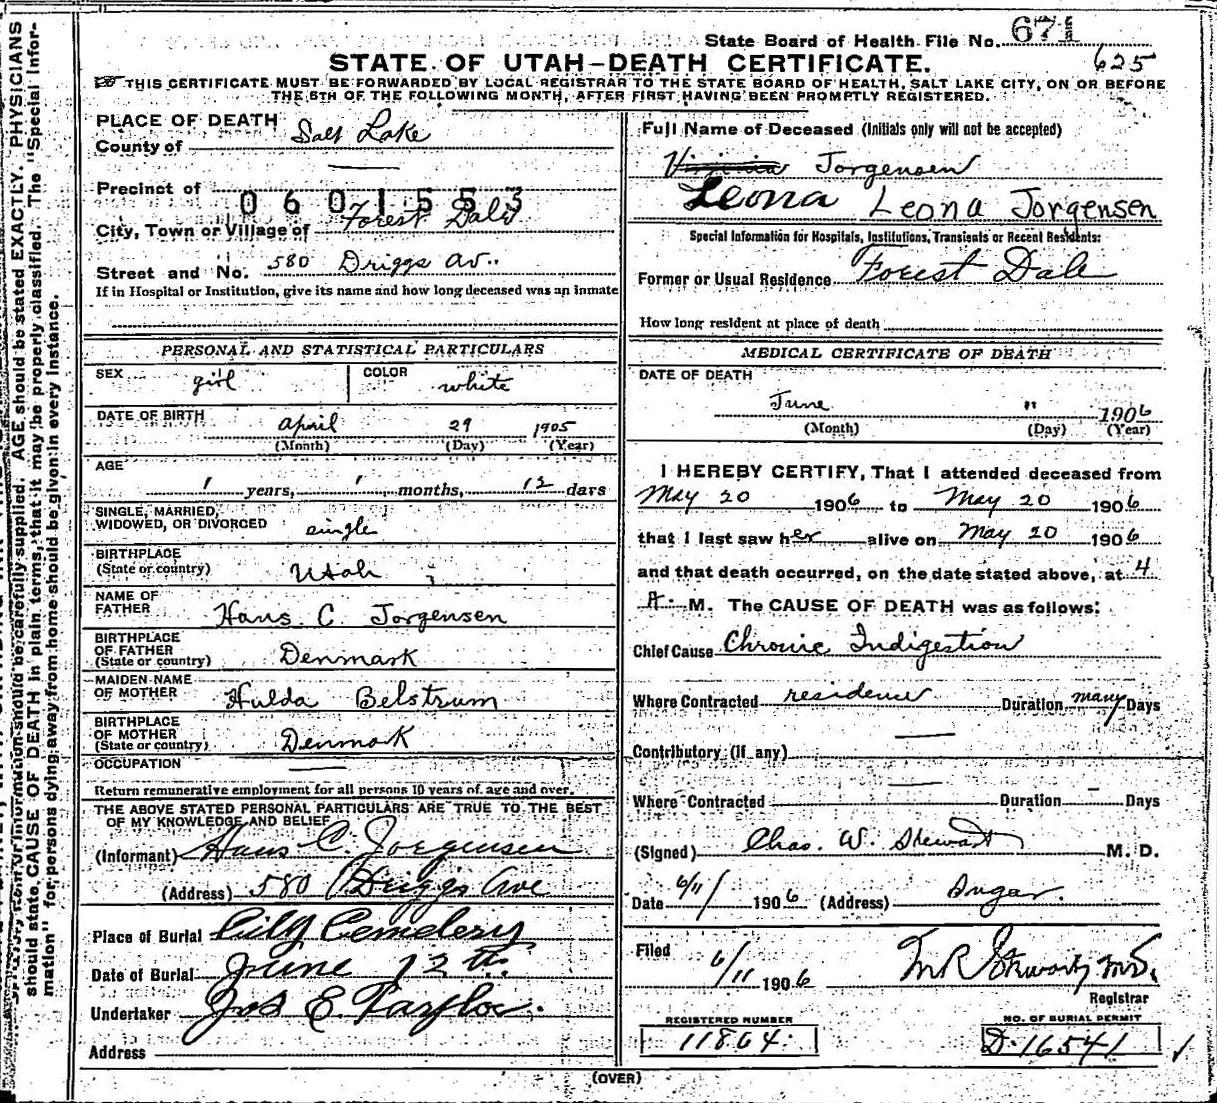 State Board of Health File No. 671
625
STATE OF UTAH–DEATH CERTIFICATE.
THIS CERTIFICATE MUST BE FORWARDED BY LOCAL REGISTRAR TO THE STATE BOARD OF HEALTH, SALT LAKE CITY, ON OR BEFORE
THE 5TH OF THE FOLLOWING MONTH, AFTER FIRST HAVING BEEN PROMPTLY REGISTERED.
PLACE OF DEATH
County of Salt Lake
Precinct of
0601553
City, Town or Village of Forest Dale
Street and No. 580 Driggs av.
If in Hospital or Institution, give its name and how long deceased was an inmate
PERSONAL AND STATISTICAL PARTICULARS
SEX girl COLOR white
DATE OF BIRTH april 29 1905
(Month) (Day) (Year)
AGE
1 years, 1 months, 12 days
SINGLE, MARRIED,
WIDOWED, OR DIVORCED single
BIRTHPLACE
(State or country) Utah
NAME OF
FATHER Hans C Jorgensen
BIRTHPLACE
OF FATHER
(State or country) Denmark
MAIDEN NAME
OF MOTHER Hulda Belstrum
BIRTHPLACE
OF MOTHER
(State or country) Denmark
OCCUPATION
Return remunerative employment for all persons 10 years of age and over.
THE ABOVE STATED PERSONAL PARTICULARS ARE TRUE TO THE BEST
OF MY KNOWLEDGE AND BELIEF
(Informant) Hans C. Jorgensen
(Address) 580 Driggs Ave
Place of Burial City Cemetery
Date of Burial June 12th.
Undertaker Jos E. Taylor.
Address
Full Name of Deceased (Initials only will not be accepted)
Virginia Jorgensen
Leona Leona Jorgensen
Special Information for Hospitals, Institutions, Transients or Recent Residents:
Former or Usual Residence Forest Dale
How long resident at place of death
MEDICAL CERTIFICATE OF DEATH
DATE OF DEATH
June 11 1906
(Month) (Day) (Year)
I HEREBY CERTIFY, That I attended deceased from
May 20 1906 to May 20 1906
that I last saw her alive on May 20 1906
and that death occurred, on the date stated above, at 4
A. M. The CAUSE OF DEATH was as follows:
Chief Cause Chronic Indigestion
Where Contracted residence Duration many Days
Contributory (if any)
Where Contracted Duration Days
(Signed) Chas. W. Stewart M. D.
Date 6/11/ 1906 (Address) Sugar.
Filed 6/11 1906
Registrar
REGISTERED NUMBER
11864
NO. OF BURIAL PERMIT
D-16541
(OVER)
should be carefully supplied. AGE should be stated EXACTLY. PHYSICIANS
should state CAUSE OF DEATH in plain terms, that it may be properly classified. The "Special Infor-
mation" for persons dying away from home should be given in every instance.